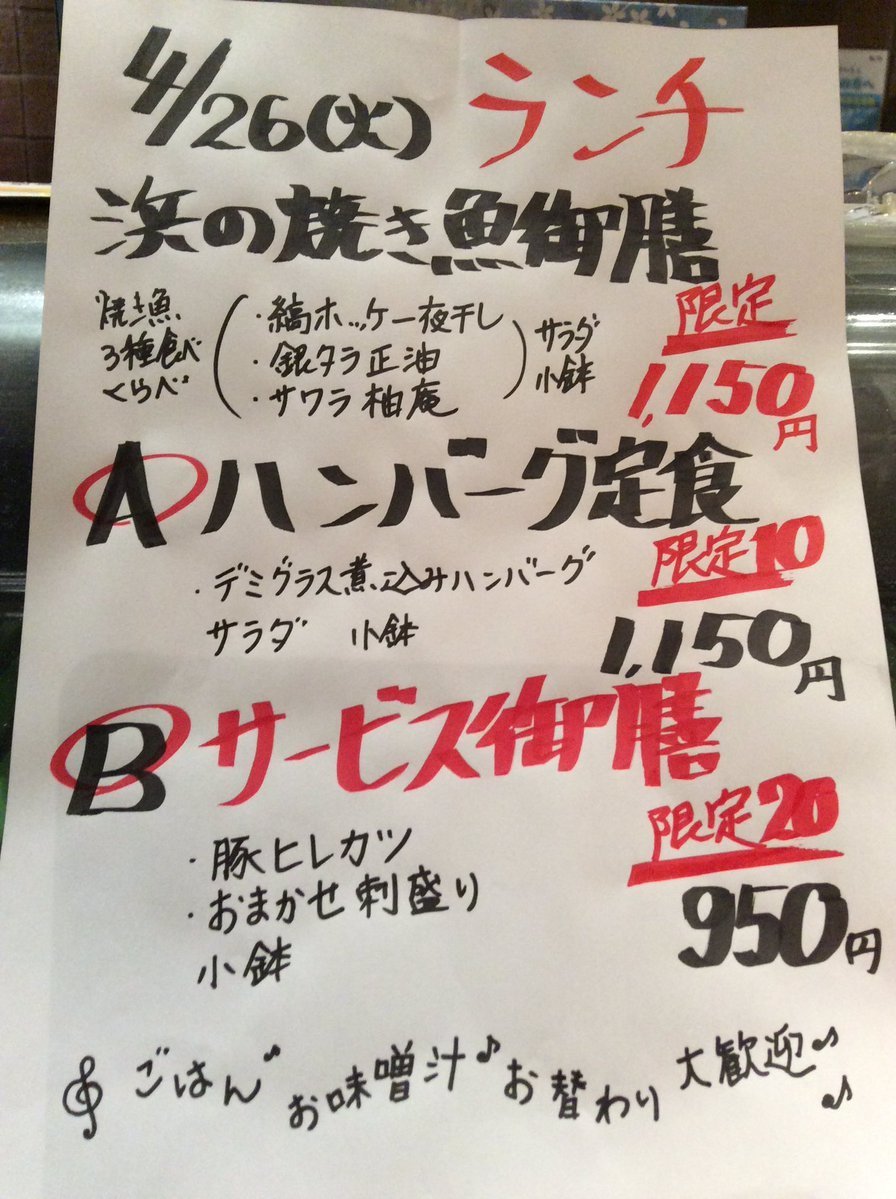 4/26(火) ランチ
浜の焼き魚御膳
焼き魚
3種食べ
くらべ
・縞ホッケ一夜干し
・銀タラ正油
・サワラ柚庵
サラダ
小鉢
限定
1,150円
A ハンバーグ定食
限定10
・デミグラス煮込みハンバーグ
サラダ 小鉢
1,150円
B サービス御膳
限定20
・豚ヒレカツ
・おまかせ刺盛り
小鉢
950円
ごはん♪ お味噌汁♪ お替わり 大歓迎♪♪